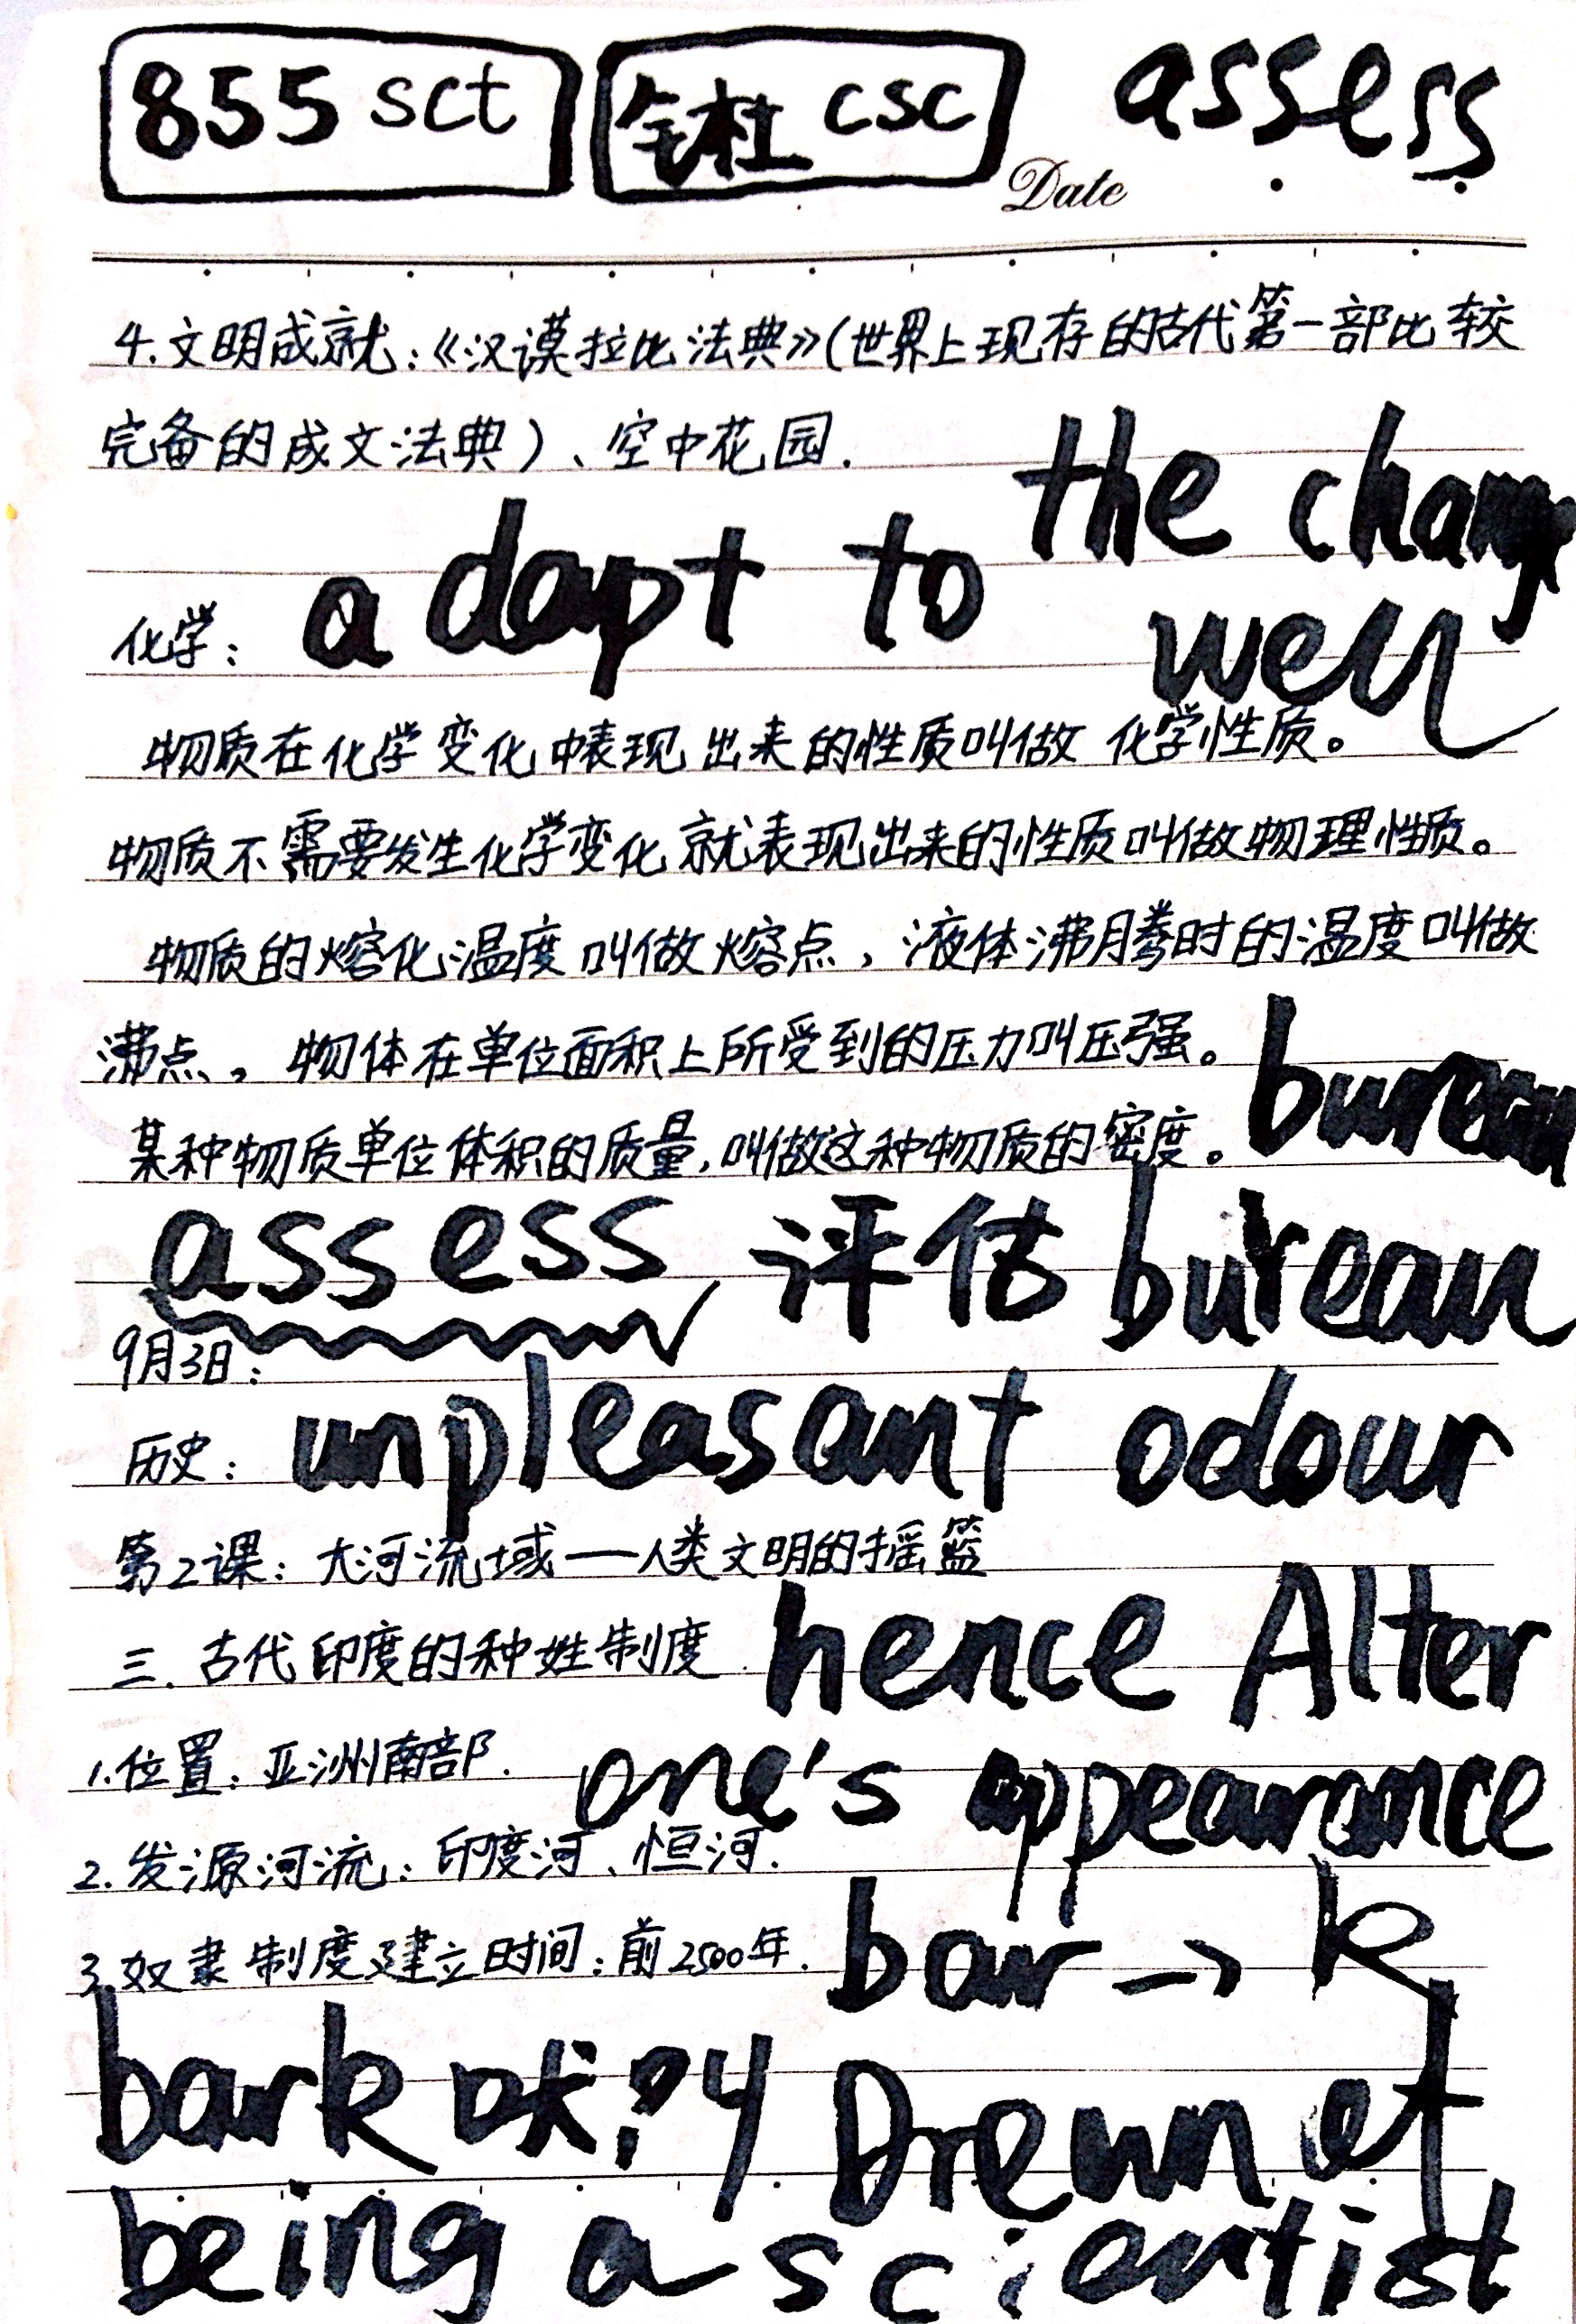 855 sct csc assess
Date
4.文明成就:《汉谟拉比法典》(世界上现存的古代第一部比较
完备的成文法典)、空中花园.
the change
化学: adapt to well
物质在化学变化中表现出来的性质叫做化学性质。
物质不需要发生化学变化就表现出来的性质叫做物理性质。
物质的熔化温度叫做熔点,液体沸腾时的温度叫做
沸点。物体在单位面积上所受到的压力叫压强。
某种物质单位体积的质量,叫做这种物质的密度。 bureau
assess 评估 bureau
9月3日:
历史: unpleasant odour
第2课:大河流域——人类文明的摇篮
三.古代印度的种姓制度 hence Alter
1.位置:亚洲南部. one's appearance
2.发源河流:印度河、恒河.
3.奴隶制度建立时间:前2500年. bar → k
bark 吠
being a scientist